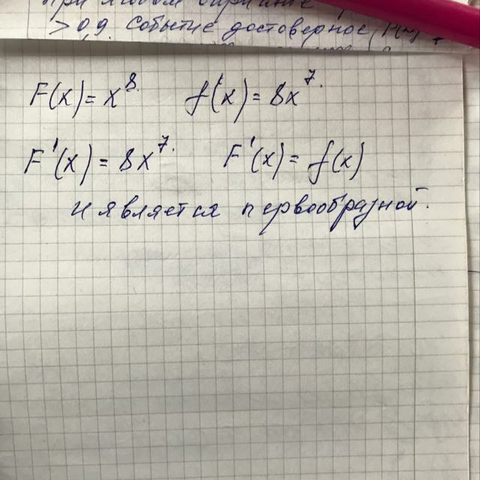 > 0,9. Событие достоверное
F(x) = x⁸. f(x) = 8x⁷.
F'(x) = 8x⁷. F'(x) = f(x)
и является первообразной.